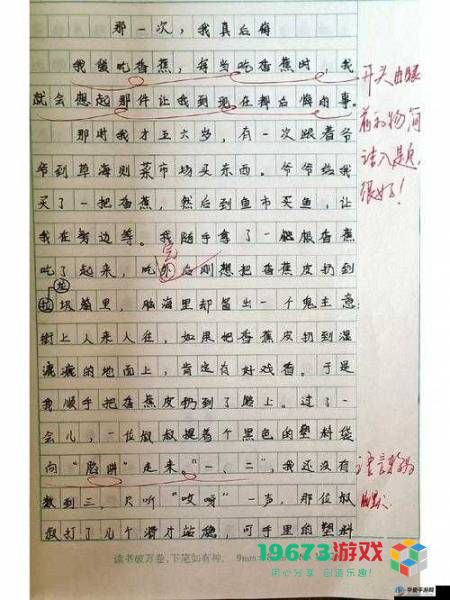 那一次，我真后悔
我爱吃香蕉，每当吃香蕉时，我
就会想起那件让我到现在都后悔的事。
那时我才五六岁，有一次跟着爷
爷到草海则菜市场买东西。爷爷给我
买了一把香蕉，然后到鱼市买鱼，让
我在旁边等。我随手拿了一根香蕉
吃了起来，吃完后刚想把香蕉皮扔到
垃圾箱里，脑海里却冒出一个鬼主意
街上人来人往，如果把香蕉皮扔到湿
漉漉的地面上，肯定有好戏看。于是
我顺手把香蕉皮扔到了路上。过了一
会儿，一位叔叔提着个黑色的塑料袋
向“陷阱”走来。“一、二”，我还没有
数到三，只听“哎呀”一声，那位叔
叔打了几个滑才站稳，可手里的塑料
开头由眼
前的物简
洁入题，
很好！
语言
幽默
读书破万卷，下笔如有神。 9mm
19673游戏
用心分享 创造乐趣！
华夏手游网